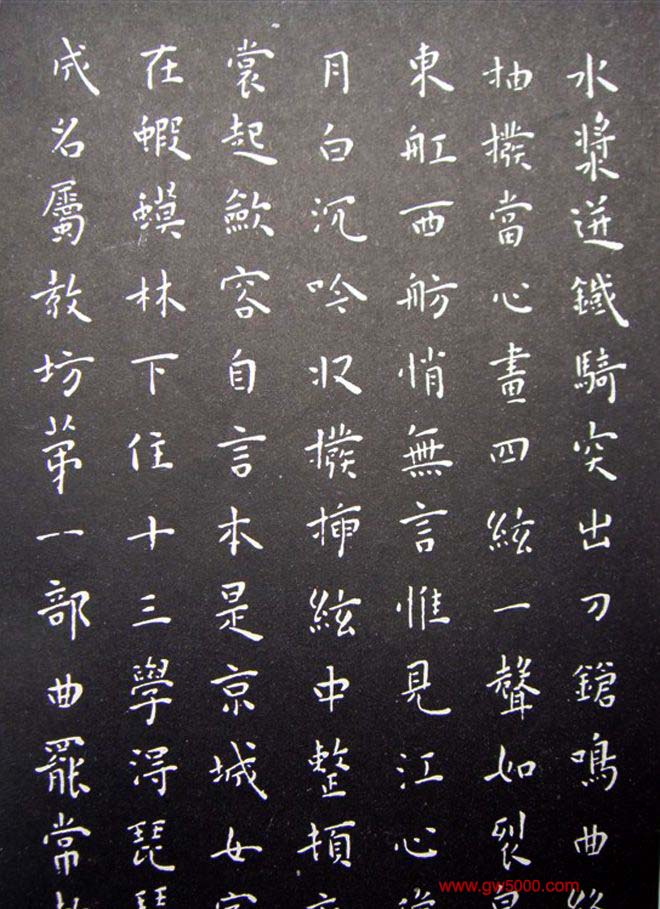 水漿迸鐵騎突出刀鎗鳴曲
抽撥當心畫四絃一聲如裂
東舡西舫悄無言惟見江心
月白沉吟収撥挿絃中整頓
裳起歛容自言本是京城女
在蝦蟆林下住十三學得琵
成名屬教坊第一部曲罷常
www.gw5000.com